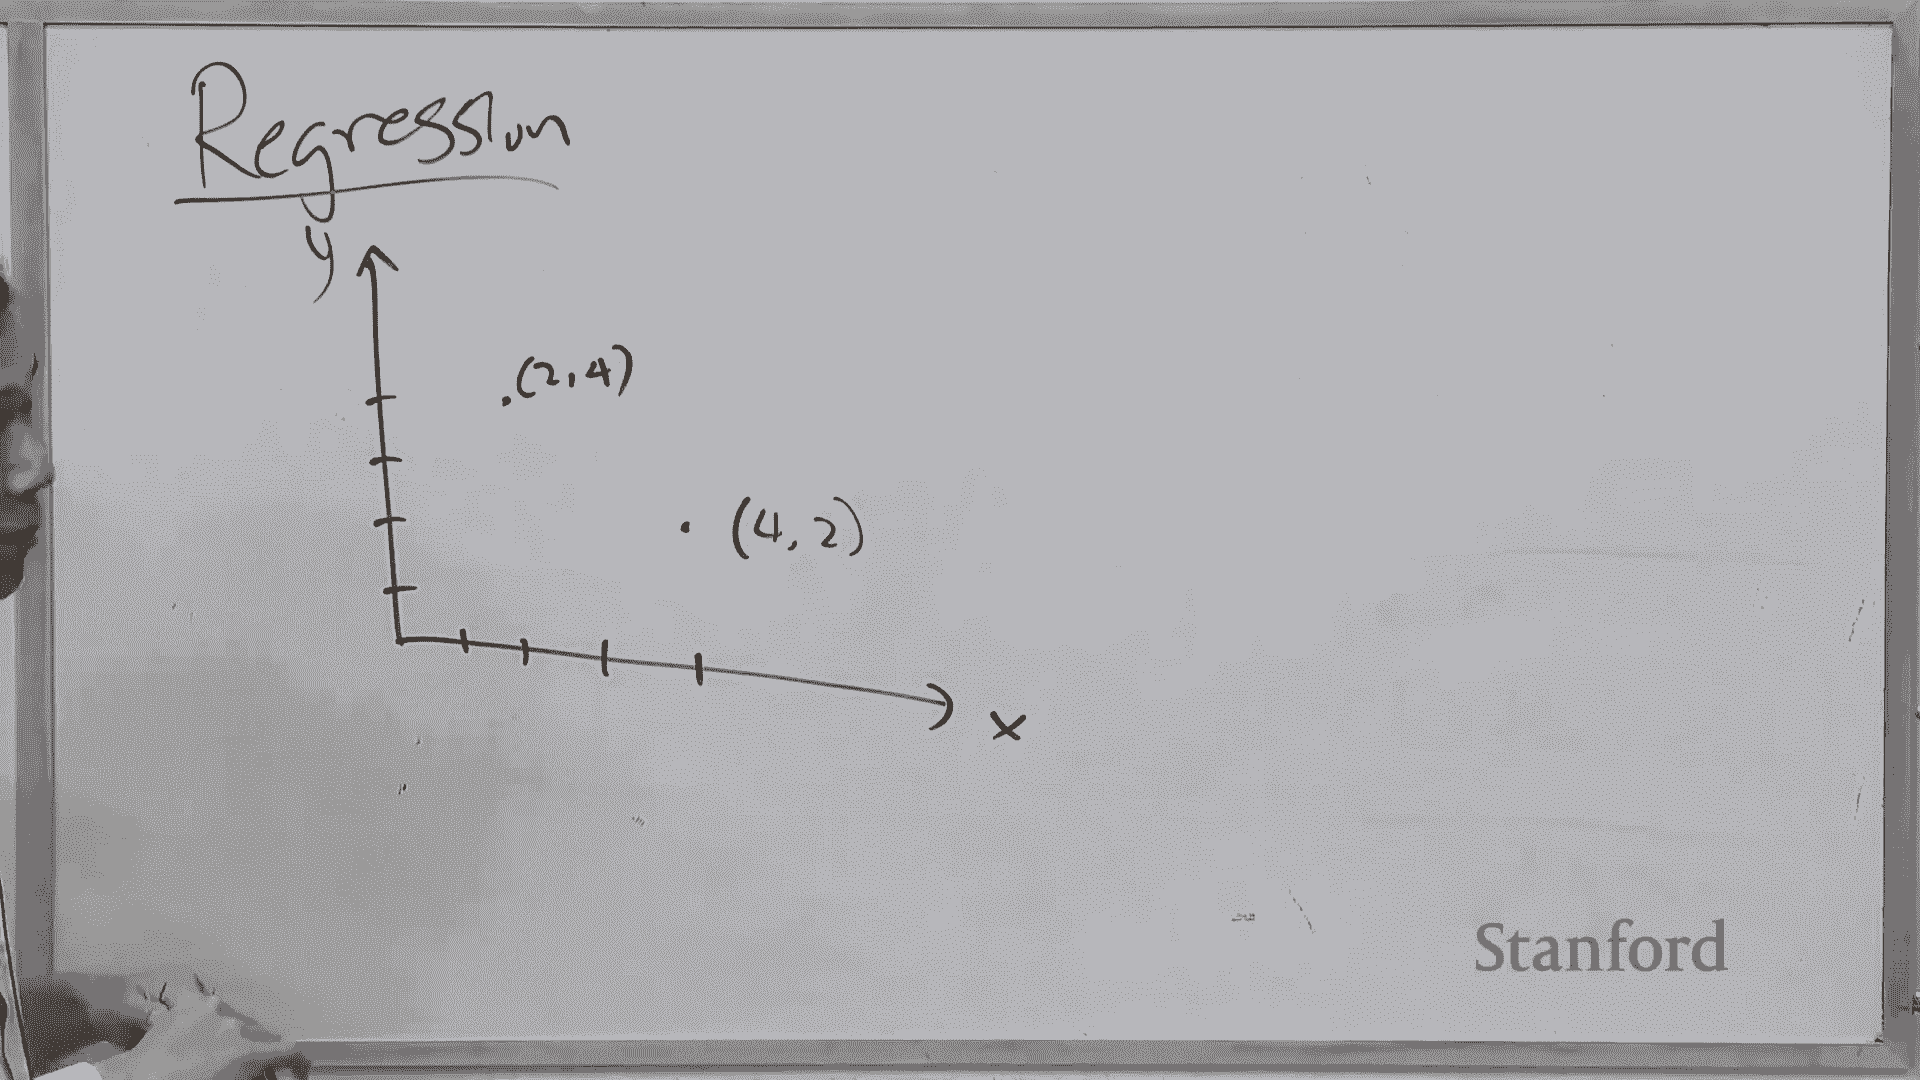 Regression
y
(2,4)
(4, 2)
x
Stanford